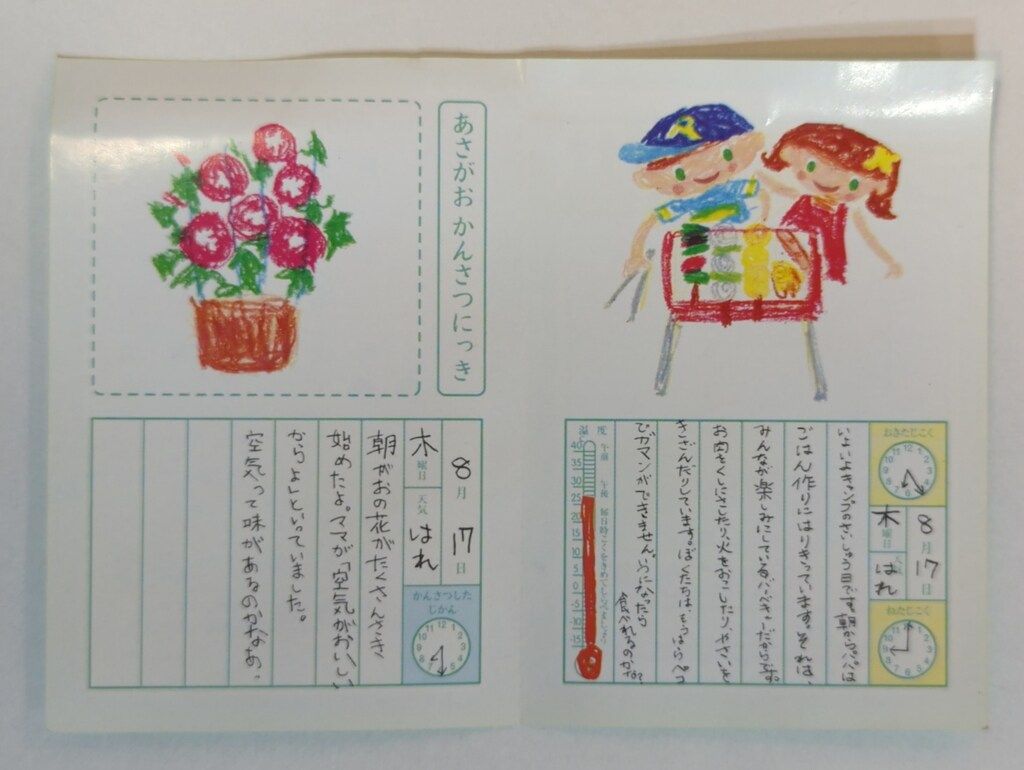 おきたじこく
8月17日
木曜日
天気 はれ
ねたじこく
いよいよキャンプのさいしゅう日です。朝からパパは
ごはん作りにはりきっています。それは、
みんなが楽しみにしているバーベキューだからです。
お肉をくしにさしたり、火をおこしたり、やさいを
きざんだりしています。ぼくたちは、もうはらペコ
でガマンができません。いつになったら
食べれるのかな?
温度
午前 午後 毎日時こくをきめてしらべましょう
40
35
30
25
20
15
10
5
0
-5
-10
-15
あさがお かんさつにっき
8月17日
木曜日
天気 はれ
かんさつした
じかん
朝がおの花がたくさんさき
始めたよ。ママが「空気がおいしい
からよ」といっていました。
空気って味があるのかなあ。